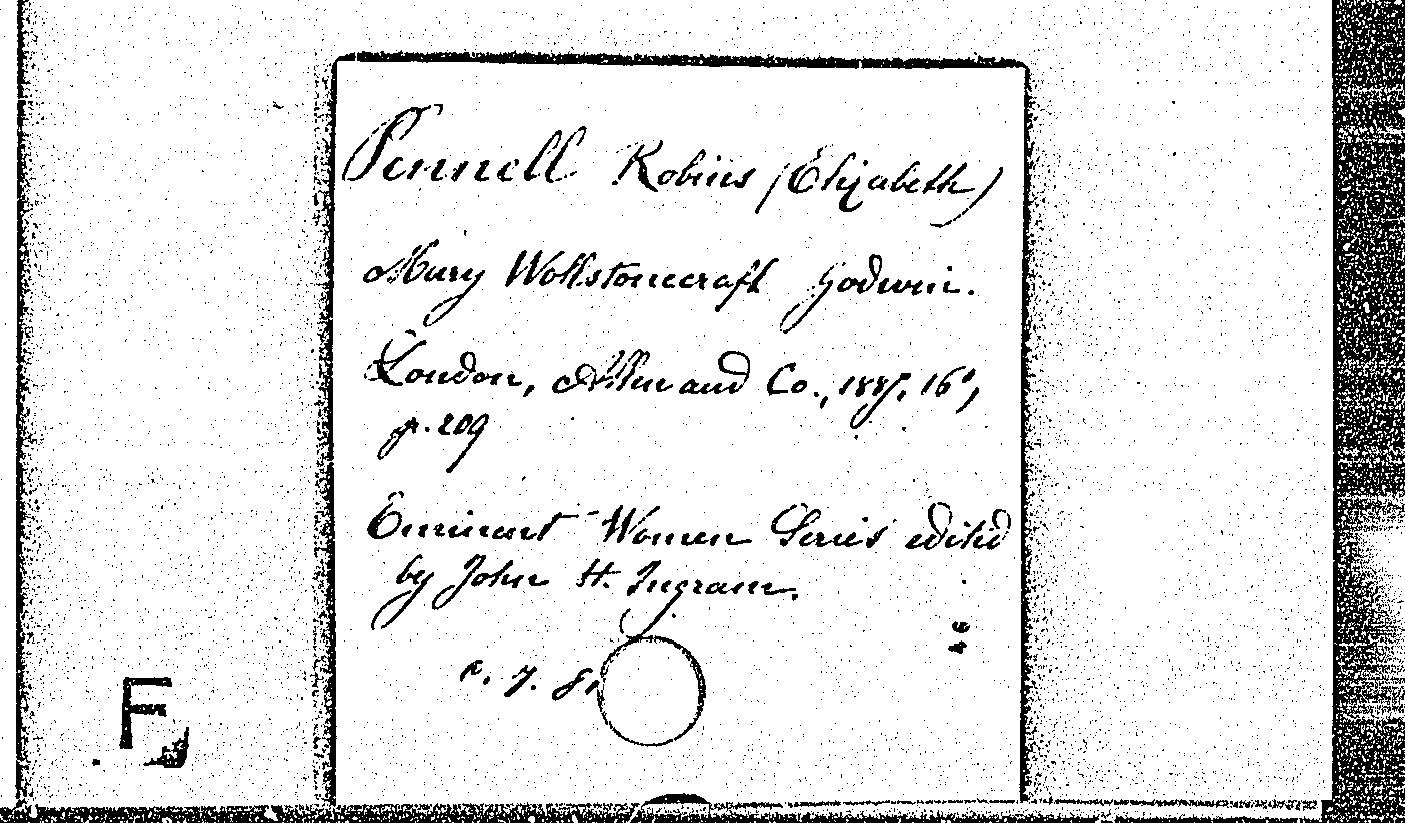 Pennell Robins (Elizabeth)
Mary Wollstonecraft Godwin.
London, Allen and Co., 1885, 16°,
p. 209
Eminent Women Series edited
by John H. Ingram.
c. 7. 81
46
F